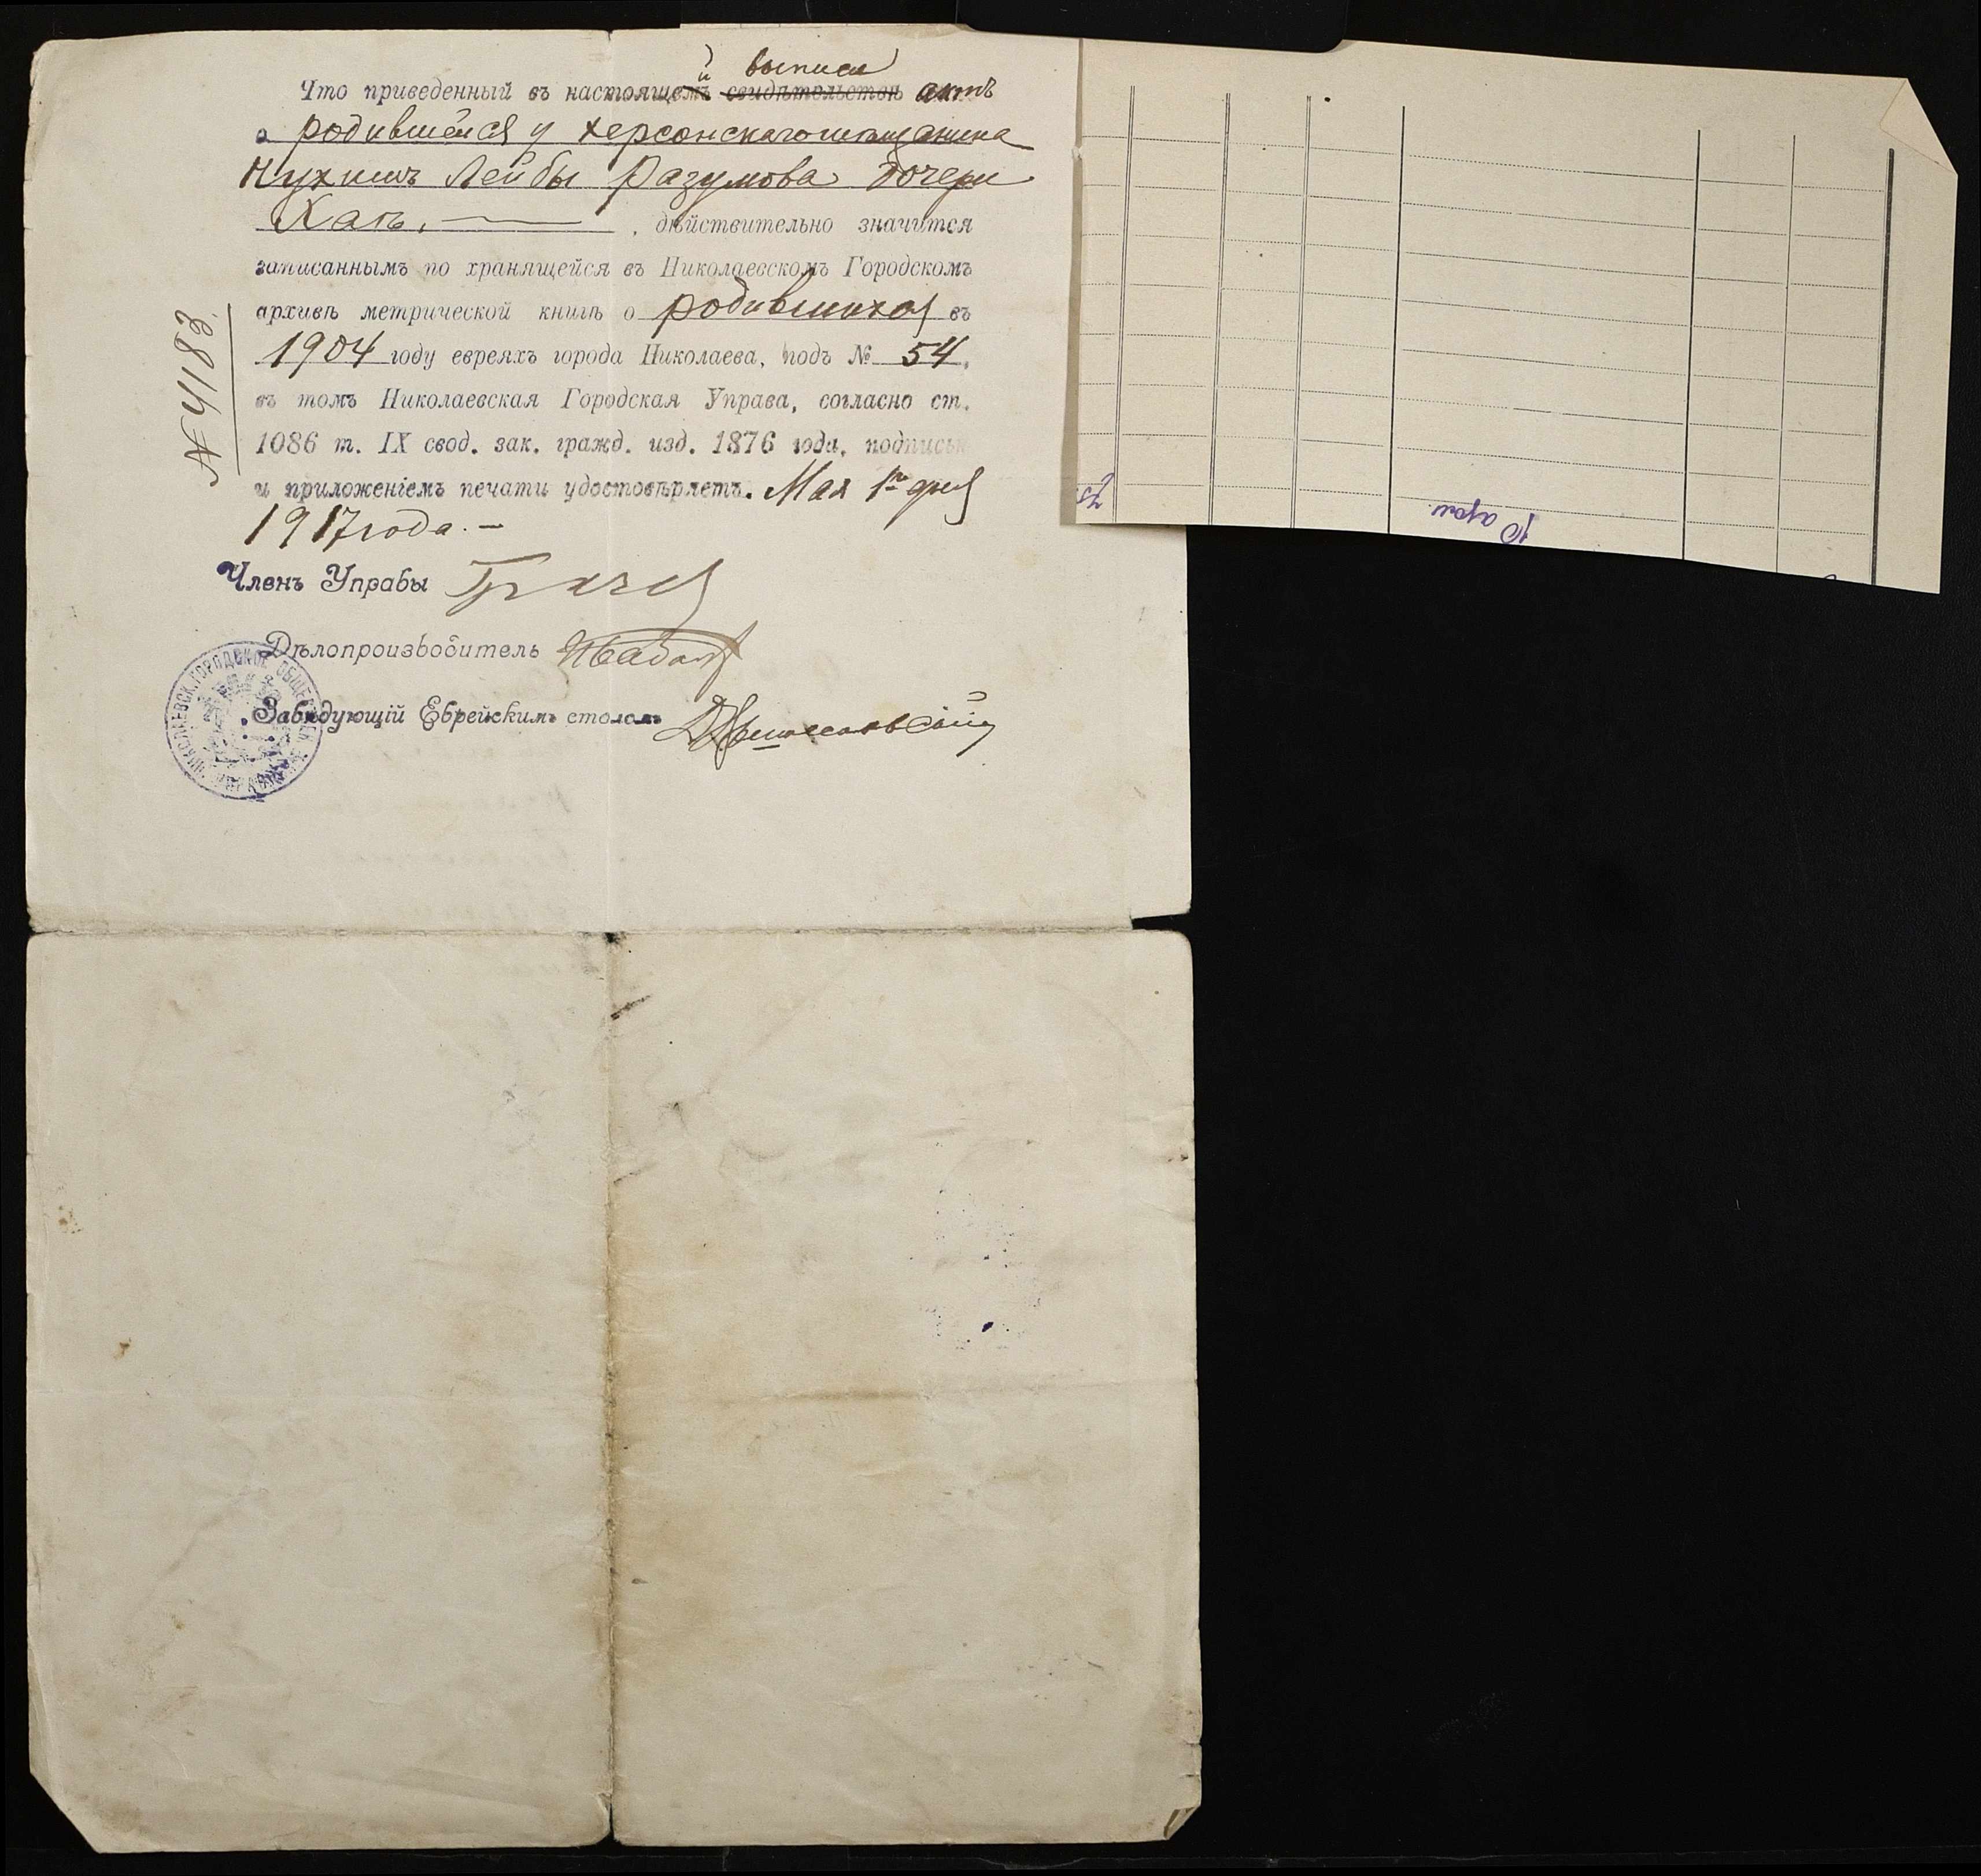 Что приведенный въ настоящемъ й свидѣтельствѣ выписи актъ
о родившейся у херсонскаго мѣщанина
Нухимъ Лейбы Разумова дочери
Хаѣ, , дѣйствительно значится
записаннымъ по хранящейся въ Николаевскомъ Городскомъ
архивѣ метрической книгѣ о родившихся въ
1904 году евреяхъ города Николаева, подъ № 54,
въ томъ Николаевская Городская Управа, согласно ст.
1086 т. IX свод. зак. гражд. изд. 1876 года, подписью
и приложеніемъ печати удостовѣряетъ. Мая 1го дня
1917 года. —
№ 4183.
Членъ Управы
Дѣлопроизводитель
Завѣдующій Еврейскимъ столомъ
НИКОЛАЕВСК. ГОРОДСКОЕ ОБЩЕСТВ.